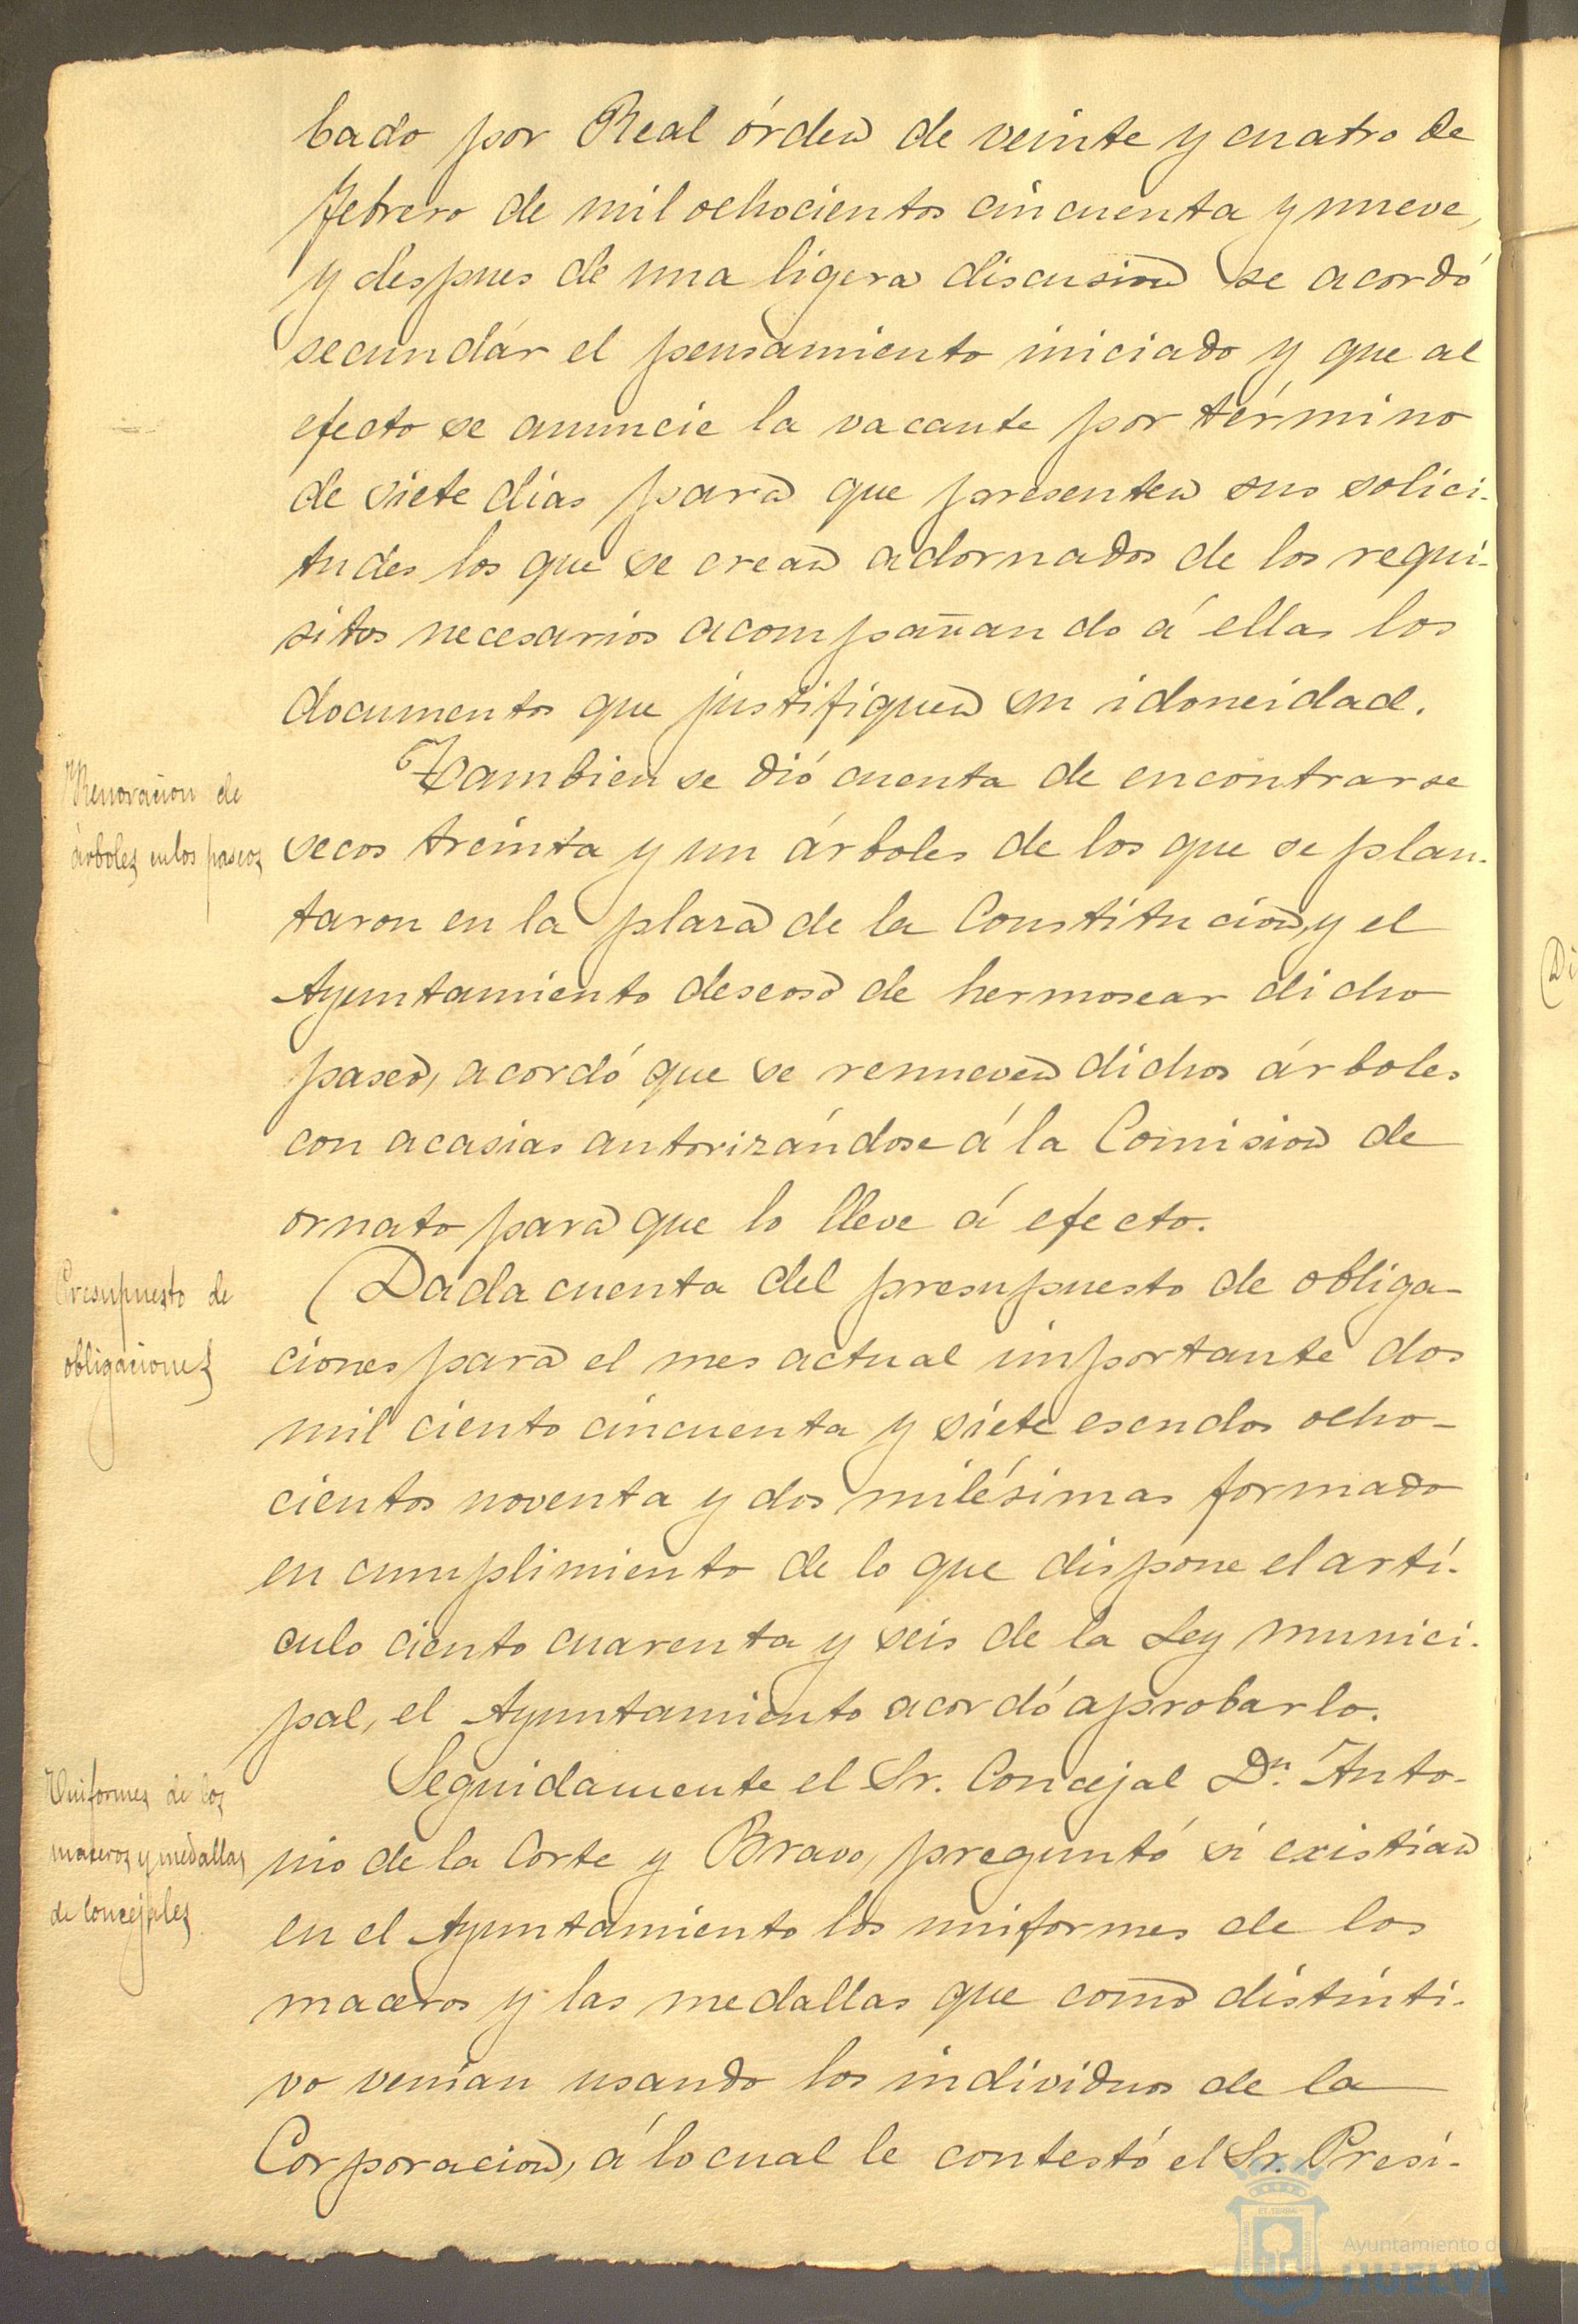 bado por Real órden de veinte y cuatro de
febrero de mil ochocientos cincuenta y nueve,
y despues de una ligera discusion se acordó
secundár el pensamiento iniciado y que al
efecto se anuncie la vacante por término
de siete dias para que presenten sus solici-
tudes los que se crean adornados de los requi-
sitos necesarios acompañando á ellas los
documentos que justifiquen su idoneidad.
Renovacion de
árboles en los paseos
Tambien se dió cuenta de encontrarse
secos treinta y un árboles de los que se plan-
taron en la plaza de la Constitucion, y el
Ayuntamiento deseoso de hermosear dicho
paseo, acordó que se renueven dichos árboles
con acasias autorizándose á la Comision de
ornato para que lo lleve á efecto.
Presupuesto de
obligaciones
Dada cuenta del presupuesto de obliga-
ciones para el mes actual importante dos
mil ciento cincuenta y siete escudos ocho-
cientos noventa y dos milésimas formado
en cumplimiento de lo que dispone el artí-
culo ciento cuarenta y seis de la Ley munici-
pal, el Ayuntamiento acordó aprobarlo.
Uniformes de los
maceros y medallas
de Concejales
Seguidamente el Sr. Concejal Dn. Anto-
nio de la Corte y Bravo, preguntó si existian
en el Ayuntamiento los uniformes de los
maceros y las medallas que como distinti-
vo venian usando los individuos de la
Corporacion, á lo cual le contestó el Sr. Presi-
Di
Ayuntamiento de
HUELVA